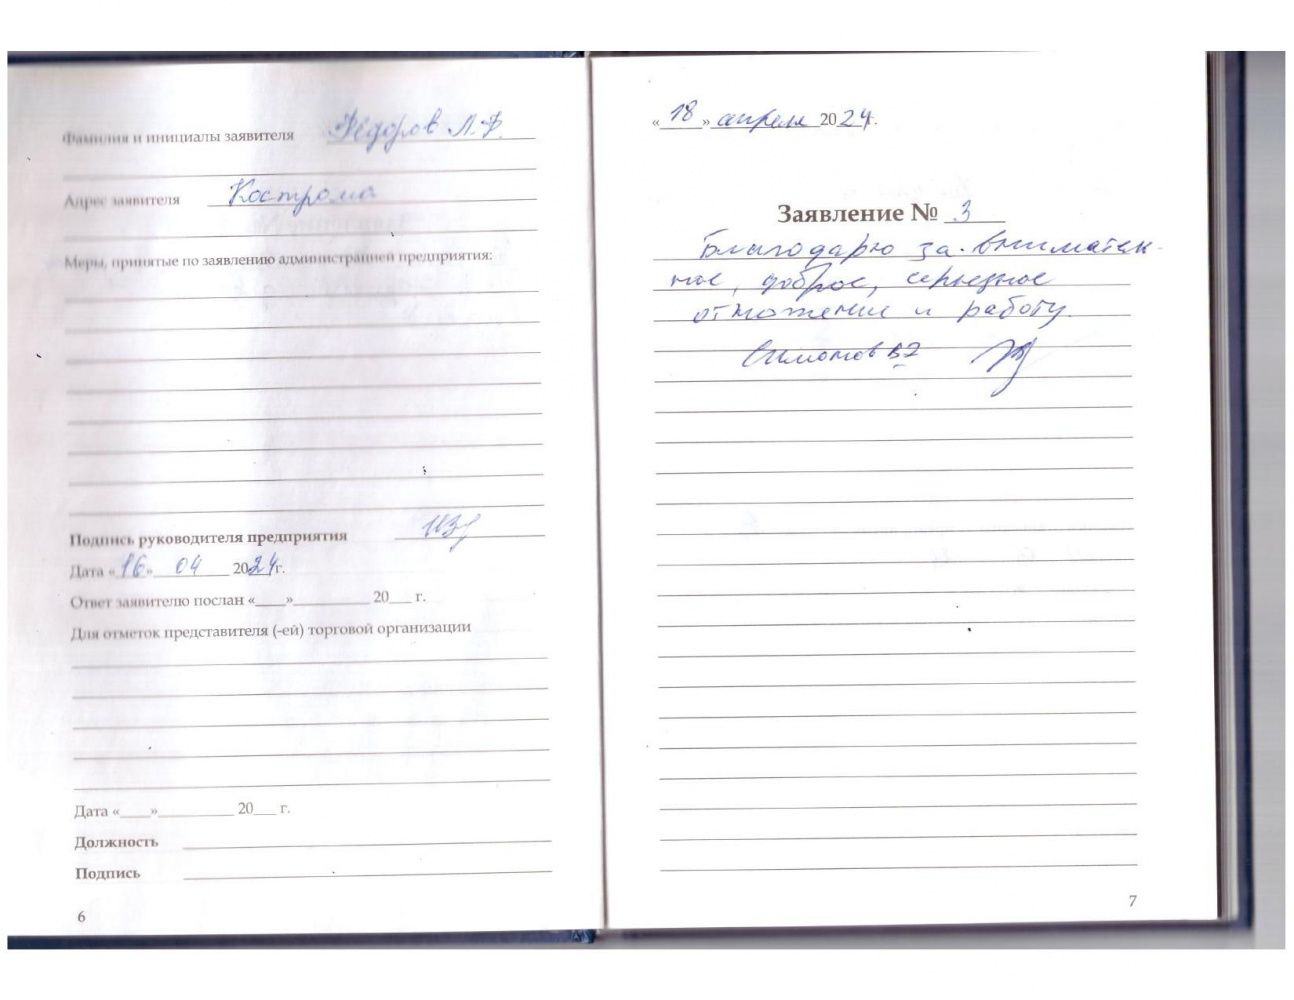 Фамилия и инициалы заявителя Фёдоров Л.Ф.
Адрес заявителя Кострома
Меры, принятые по заявлению администрацией предприятия:
Подпись руководителя предприятия
Дата «16» 04 2024г.
Ответ заявителю послан «____»__________ 20___ г.
Для отметок представителя (-ей) торговой организации
Дата «____»__________ 20___ г.
Должность
Подпись
6
«18» апреля 2024г.
Заявление № 3
Благодарю за вниматель-
ное, доброе, серьезное
отношение и работу.
7